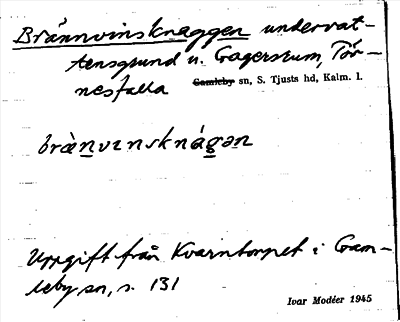 Brännvinsknaggen undervat-
tensgrund u. Gagersrum, Tör-
nesfalla
Gamleby sn, S. Tjusts hd, Kalm. l.
brànvɪnsknágən
Uppgift från Kvarntorpet i Gam-
leby sn, s. 131
Ivar Modéer 1945